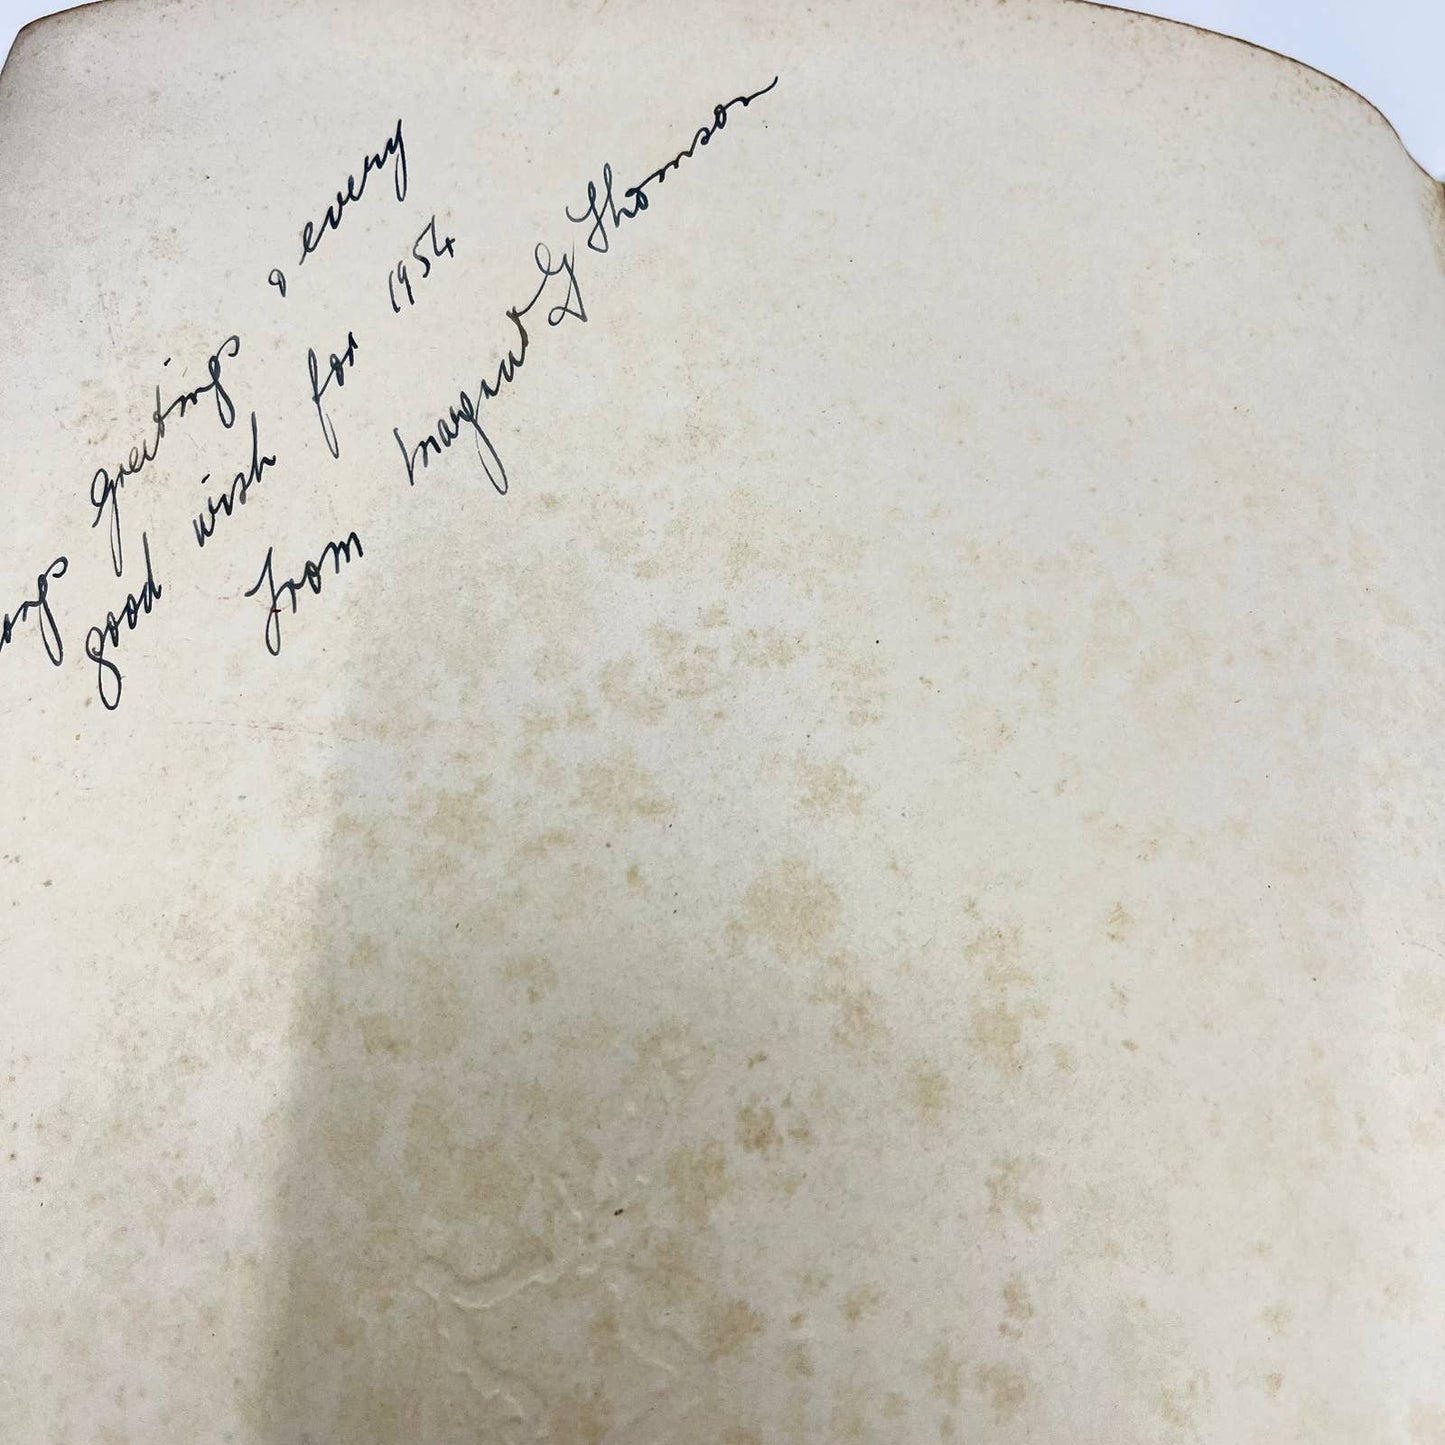 greetings & every
good wish for 1954
from Margaret G Thomson